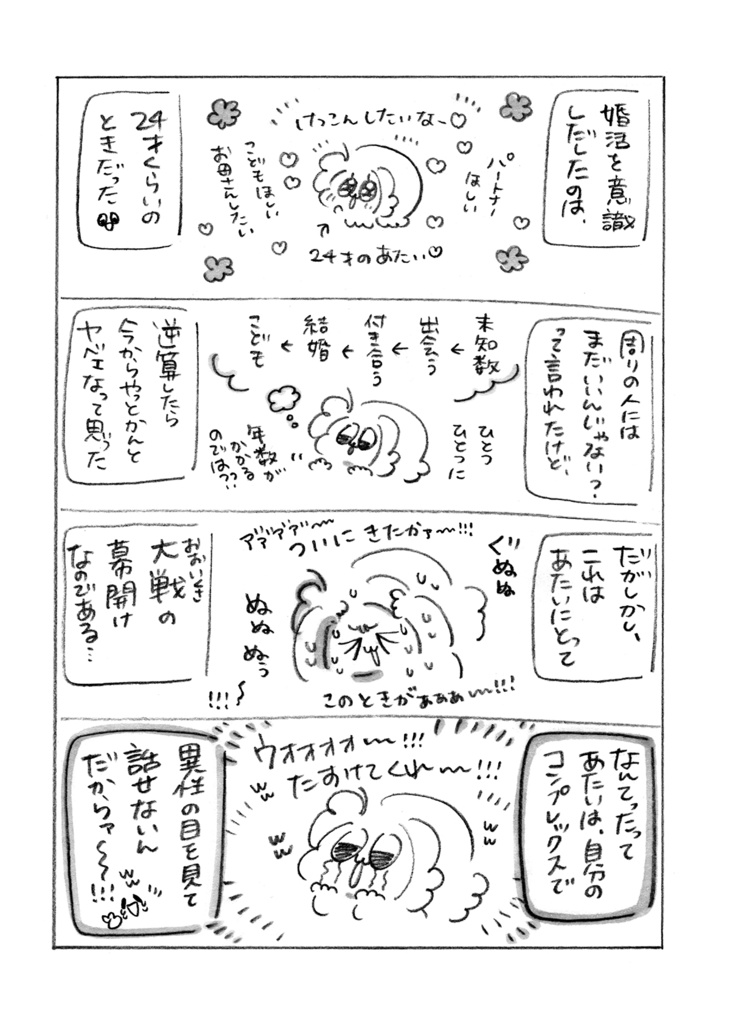 婚活を意識
しだしたのは、
けっこんしたいなー♡
パートナー
ほしい
こどもほしい
お母さんしたい
24才のあたい♡
24才くらいの
ときだった
周りの人には
まだいいんじゃない？
って言われたけど、
未知数
←
出会う
←
付き合う
←
結婚
←
こども
ひとつ
ひとつに
年数が
かかる
のでは??
逆算したら
今からやっとかんと
ヤベェなって思った
だがしかし、
これは
あたいにとって
ぐぬぬ
ついにきたかァ〜!!!
ァァァァ〜
ぬぬぬぅ
〜!!!
このときがぁぁぁ〜!!!
大戦の
おおいくさ
幕開け
なのである…
なんてったって
あたいは、自分の
コンプレックスで
ウォォォォ〜!!!
たすけてくれ〜!!!
異性の目を見て
話せないん
だからァ〜〜!!!